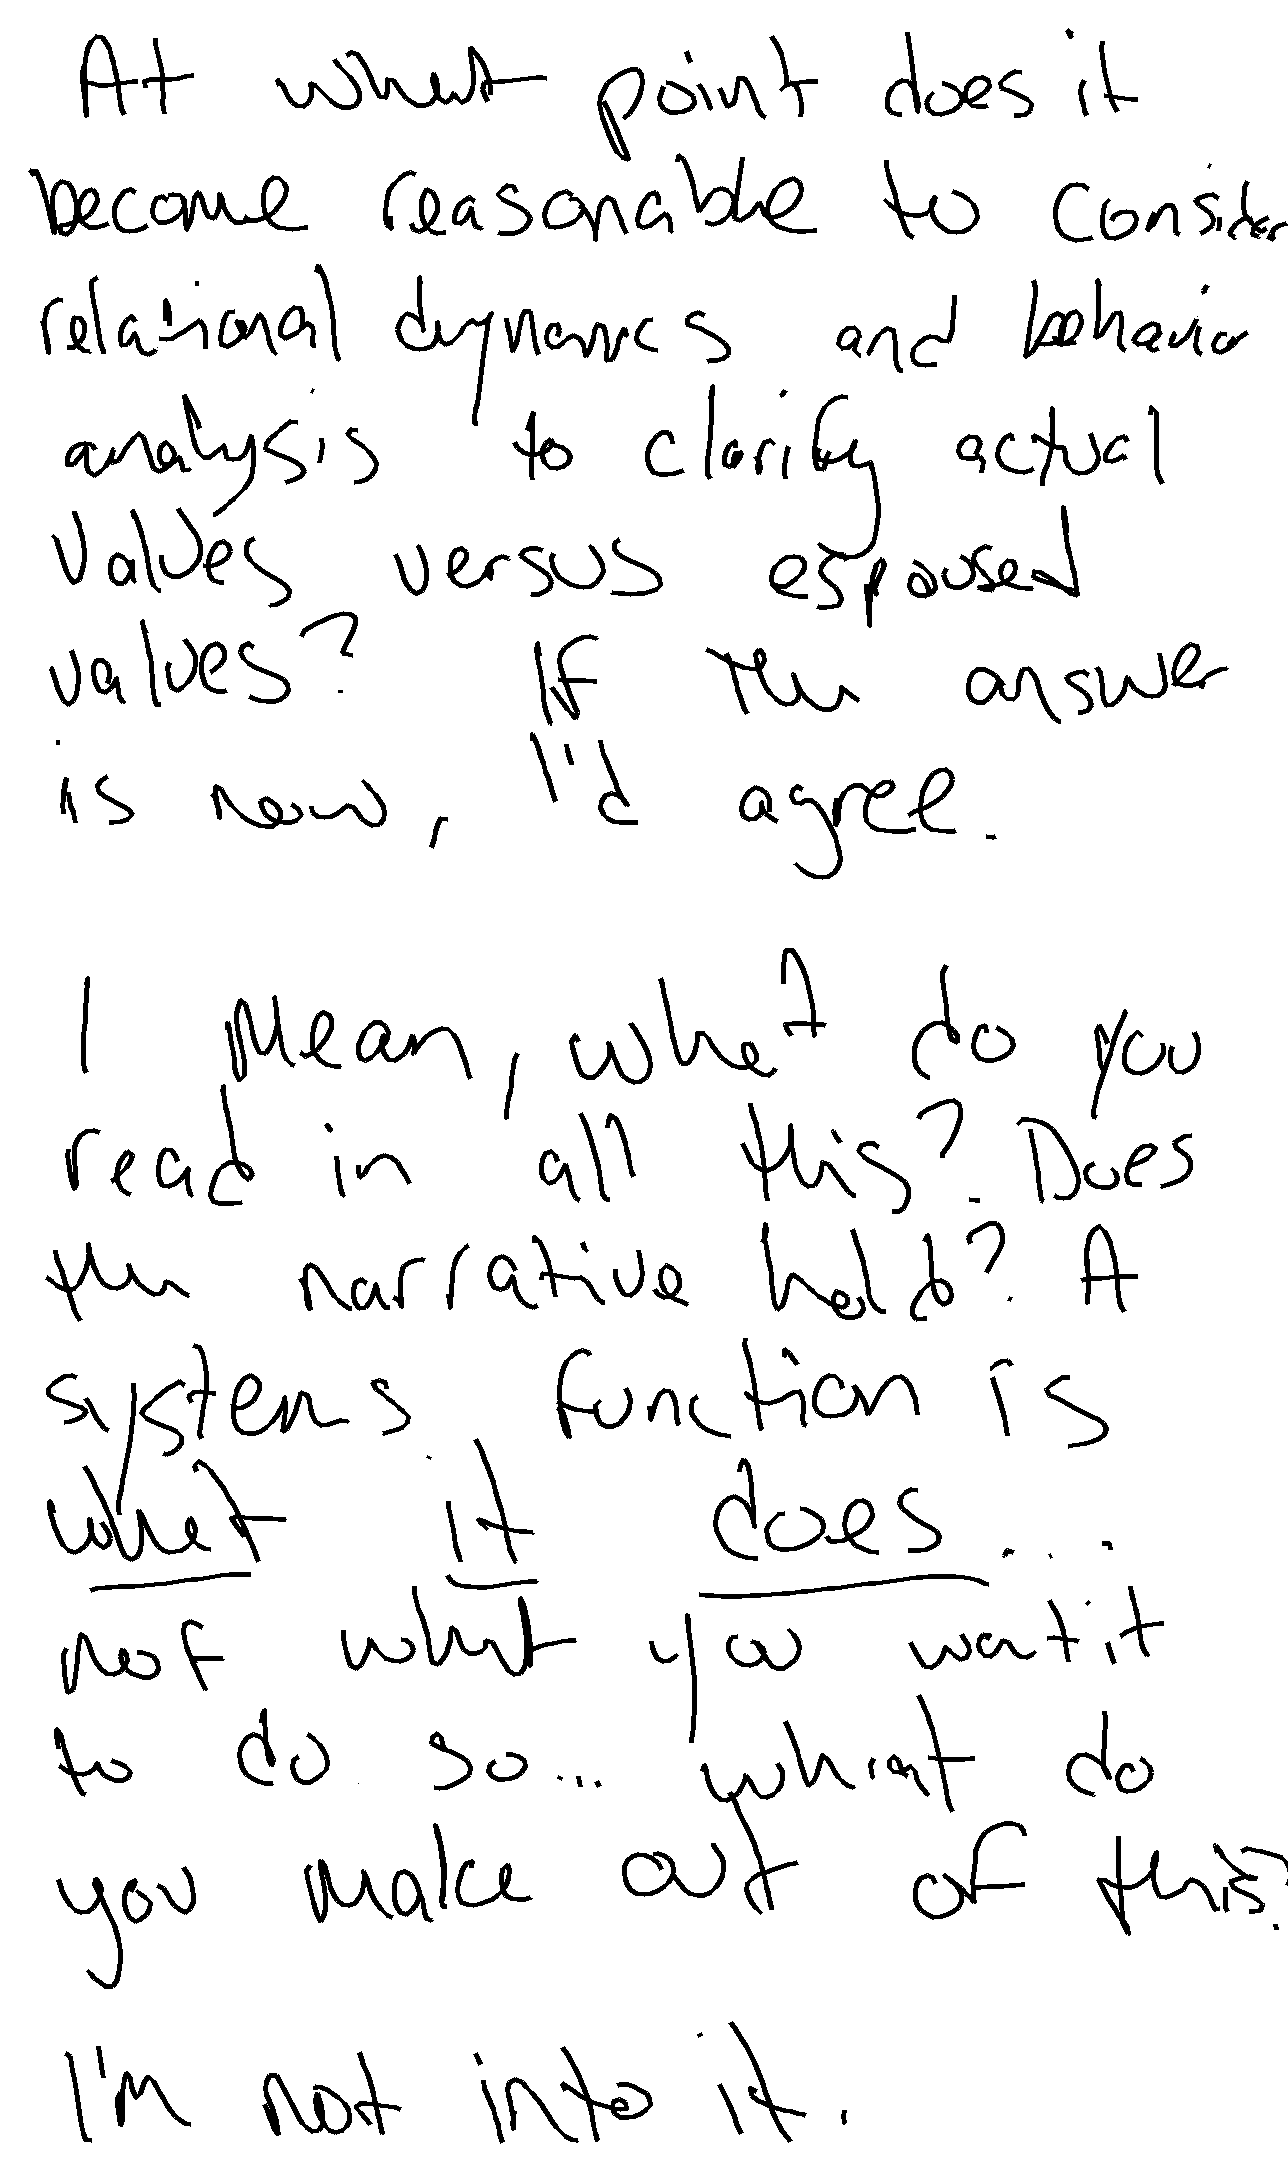 At what point does it
become reasonable to consider
relational dynamics and behavior
analysis to clarify actual
values versus espoused
values? If the answer
is now, I'd agree.
I mean, what do you
read in all this? Does
the narrative hold? A
systems function is
what it does...
not what you wat it
to do so... what do
you make out of this?
I'm not into it.